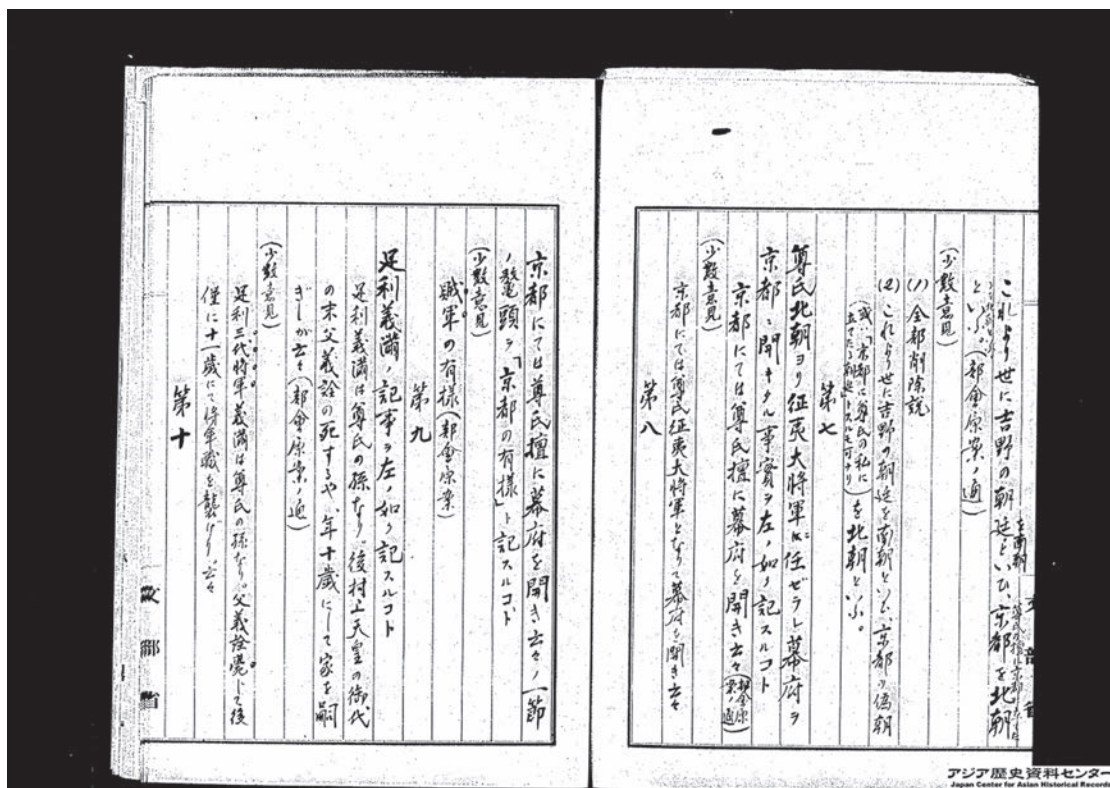 これより世に吉野の朝廷を南朝といひ、京都を北朝
といふ。(部會原案ノ通)
(少數意見)
(1) 全部削除說
(2) これより世に吉野の朝廷を南朝といひ、京都の僞朝
(或ハ「京都に尊氏の私に立てたる朝廷」トスルモ可ナリ)を北朝といふ。
第七
尊氏北朝ヨリ征夷大將軍ニ任ゼラレ幕府ヲ
京都ニ開キタル事實ヲ左ノ如ク記スルコト
京都にては尊氏擅に幕府を開き云々(部會原案ノ通)
(少數意見)
京都にては尊氏征夷大將軍となりて幕府を開き云々
第八
京都にては尊氏擅に幕府を開き云々ノ一節
ノ鼇頭ヲ「京都の有樣」ト記スルコト
(少數意見)
賊軍の有樣(部會原案)
第九
足利義滿ノ記事ヲ左ノ如ク記スルコト
足利義滿は尊氏の孫なり。後村上天皇の御代
の末父義詮の死するや、年十歲にして家を嗣
ぎしが云々(部會原案ノ通)
(少數意見)
足利三代將軍義滿は尊氏の孫なり。父義詮薨じて後
僅に十歲にて將軍職を襲げり、云々
第十
文部省
アジア歴史資料センター
Japan Center for Asian Historical Records